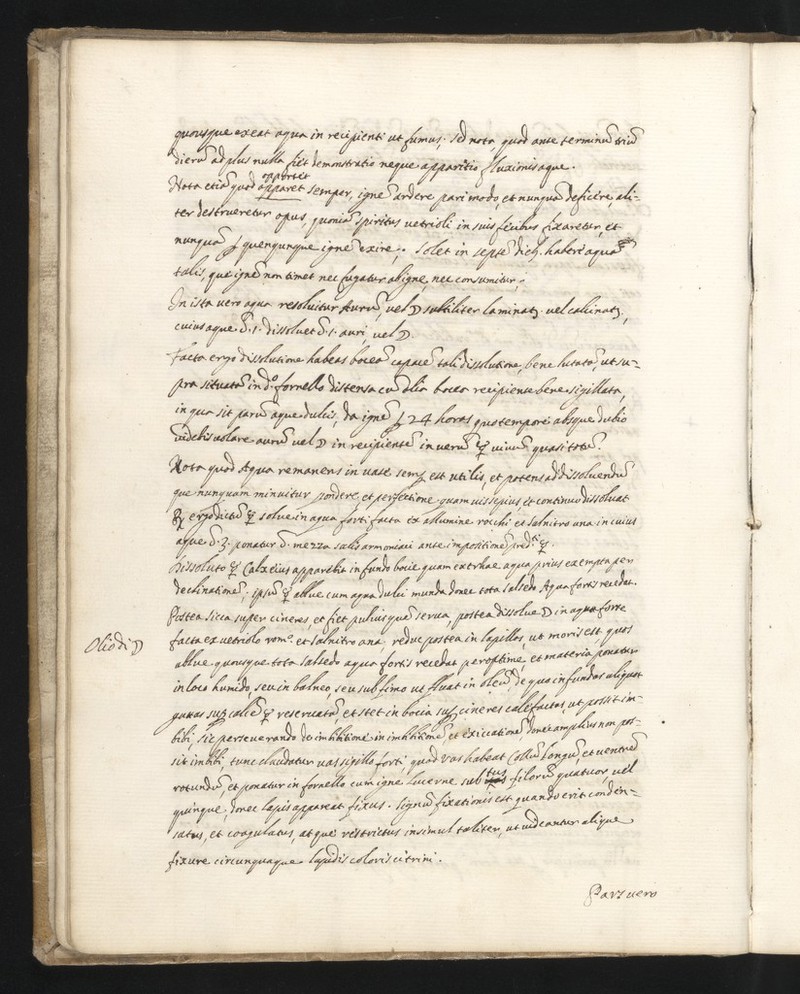 quousque exeat aqua in recipienti ut fumus. Sed nota quod ante terminũ triũ
dierũ ad plus nulla fiet demonstratio neque apparitio fluxionis aque.
Nota etiã quod apparet oportet semper, ignẽ ardere pari modo, et nunquã deficere, ali-
ter destrueretur opus, quoniã spiritus uetrioli in suis fecibus fixaretur, et
nunquã quencunque ignẽ exire. Solet in septẽ habere aquã
talis, que ignẽ non timet nec fugatur ab igne nec consumitur.
In ista vero aqua resoluitur Aurũ, vel ☽ subtiliter laminat. vel calcinat.,
cuius aque 1. dissoluet 1. auri, vel ☽.
Facta ergo dissolutione habeas boceã capacẽ tali dissolutione, bene lutatã, ut su-
pra situatã in d.º fornello distensa cũ alia bocea recipiente bene sigillata,
in qua sit parũ aque dulcis, da ignẽ 24 horas quo tempore absque dubio
uidebis uolare aurũ vel ☽ in recipientẽ in verũ ☿ uiuum quasi totũ.
Nota quod Aqua remanens in uase semp est utilis, et potens ad dissoluendũ
que nunquam minuitur pondere et perfectione quamuis sepius et continuo dissoluat
ergo dictũ ☿ solue in aqua forti facta ex allumine rocchi et salnitro una in cuius
aque 3. ponatur mezza salis armoniaci ante impositionẽ pred.ti ☿.
Dissoluto ☿ Calx eius apparebit in fundo bocie quam extrahe aqua prius exempta per
declinationẽ; ipsũ ☿ ablue cum aqua dulci munda donec tota salsedo Aqua fortis recedat.
Postea sicca super cineres, et fiet puluis que serua, postea dissolue ☽ in aqua forte
Olio di ☽
facta ex uetriolo rom.º et salnitro ana, reduc postea in lapillos, ut moris est, quos
ablue quousque tota salsedo aqua fortis recedat per optime, et materia ponatur
in loco humido, seu in balneo, seu sub fimo ut fluat in oleũ, de quo infundas aliquot
guttas sup calcẽ ☿ reseruatã, et stet in bocia sup cineres calefactos ut possit im-
bibi, sic perseuerando de imbibitione in imbibitionẽ et exiccationẽ donec amplius non pos-
sit imbibi, tunc claudatur uas sigillo forti, quod vas habeat Collũ longũ, et uentrẽ
rotundũ, et ponatur in fornello cum igne lucerne subtus filorũ quatuor, vel
quinque, donec lapis appareat fixus. Signũ fixationis est quando erit conden-
satus, et coagulatus, atque restrictus insimul taliter, ut uideantur alique
fixure circunquaque lapidis coloris citrini.
Pars uero